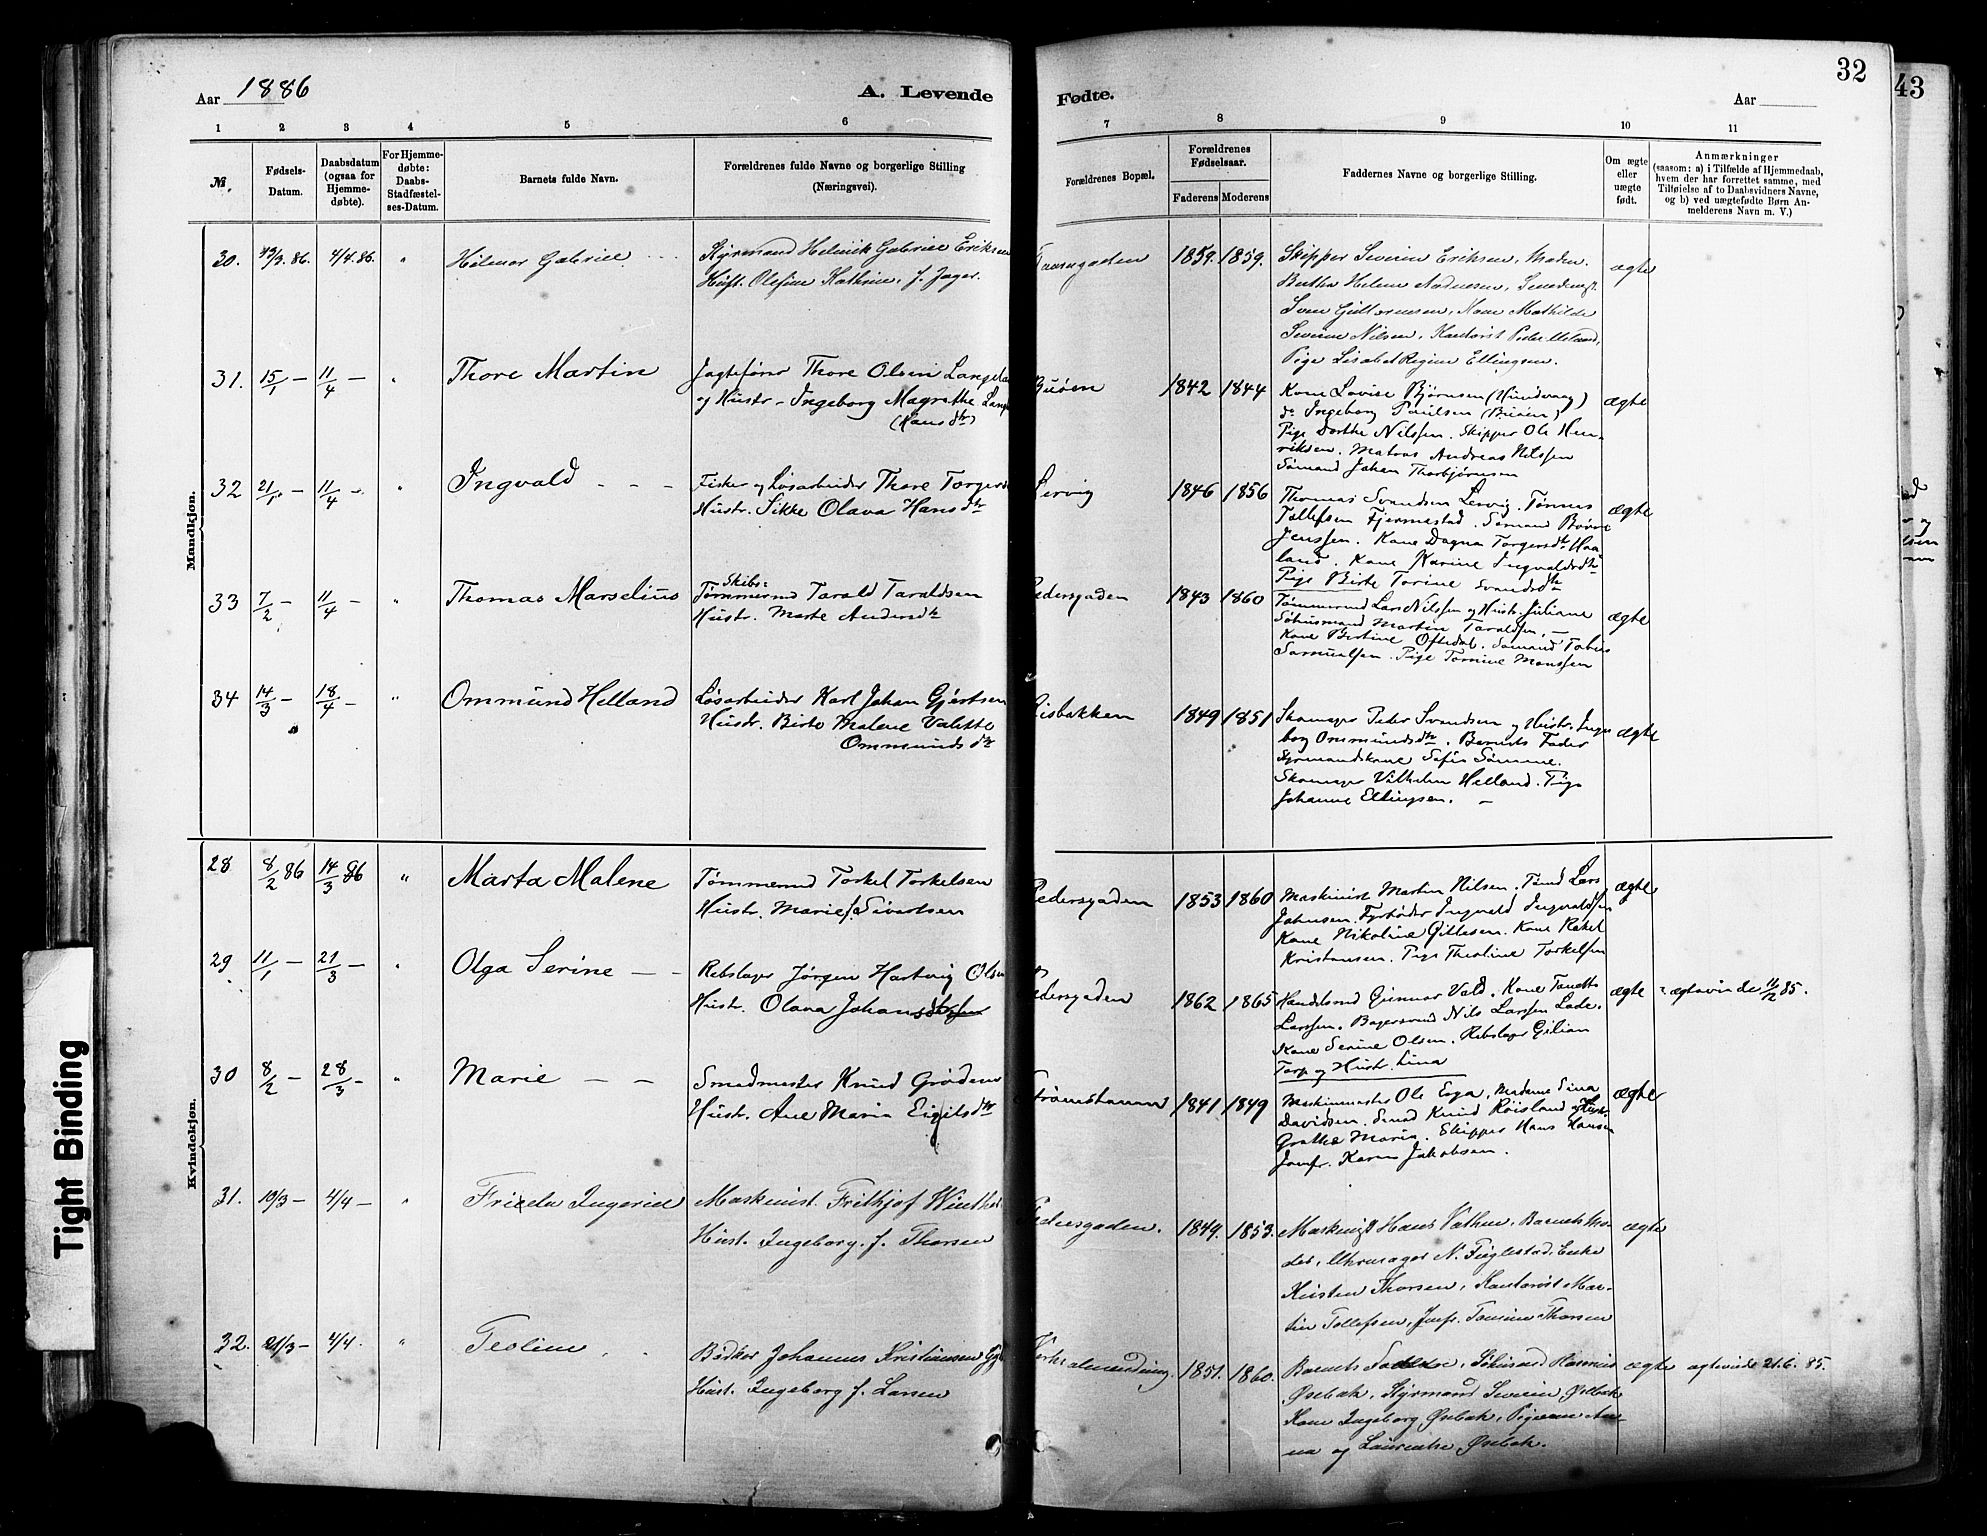 Aar 1886
A. Levende
Fødte.
Aar
32
43
1 2 3 4 5 6 7 8 9 10 11
No.
Fødsels-
Datum.
Daabsdatum
(ogsaa for
Hjemme-
døbte).
For Hjemme-
døbte:
Daabs-
Stadfæstel-
ses-Datum.
Barnets fulde Navn.
Forældrenes fulde Navne og borgerlige Stilling
(Næringsvei).
Forældrenes Bopæl.
Forældrenes
Fødselsaar.
Faderens Moderens
Faddernes Navne og borgerlige Stilling.
Om ægte
eller
uægte
født.
Anmærkninger
(saasom: a) i Tilfælde af Hjemmedaab,
hvem der har forrettet samme, med
Tilføielse af to Daabsvidners Navne,
og b) ved uægtefødte Børn An-
melderens Navn m. V.)
Mandkjøn.
30. 4/4.86. " Hilmar Gabriel
Styrmand Helmik Gabriel Eriksen
Hust. Olesine Kathrine, f. Jager.
1859. 1859.
Skipper Severin Eriksen, Madm.
Bertha Helene
Sven Guttormsen, Kone Mathilde
Severine Nilsen, Kontorist Peder
Pige Lisabet Regine Ellingsen.
ægte
31. 15/1 – 11/4 " Thore Martin
Jagtefører Thore Olsen
og Hustr – Ingeborg Magrethe
(Hansdtr)
Buøen 1842 1844
Kone Lovise Bjørnsen (Hundvaag)
do Ingeborg Paulsen (Buøen)
Pige Dorthe Nilssen. Skipper Ole Hen-
riksen. Matros Andreas Nilssen
Sømand Johan Thorbjørnsen
ægte
32 21/1 – 11/4 – " Ingvald – – –
Fisker og Løsarbeider Thore Torgers
Hustr. Sikke Olava Hansdtr
Lervig 1846 1856
Thomas Svendsen Lervig. Tønnes
Tollefsen Fjermestad. Sømand
Jenssen. Kone Dagna Torgersdtr Haa-
land. Kone Karine Ingvaldsdtr
Pige Birte Torine Svendsdtr
ægte
33 7/2 – 11/4 – " Thomas Marselius
Skibs-
Tømmermd Tarald Taraldsen
Hustr. Marte Andersdtr
Pedersgaden 1843 1860
Tømmermd Lars Nilssen og Hustr. Juliane
Martin Taraldsen, –
Kone Bertine Oftedal. Sømand Tobias
Samuelsen. Pige Tomine Monssen
ægte
34 14/3 – 18/4 – " Ommund Helland
Løsarbeider Karl Johan Gjertsen
Hustr. Birte Malene Valette
Ommundsdtr
Risbakken 1849 1851
Skomager Peder Svendsen og Hustr. Inge-
borg Ommundsdtr. Barnets Fader
Styrmandskone Sofie Sømme.
Skomager Vilhelm Helland. Pige
Johanne Ellingsen. –
ægte
Kvindekjøn.
28 8/2 86 14/3 86 " Marta Malene
Tømmermd Torkel Torkelsen
Hustr. Marie f. Sivertsen
Pedersgaden 1853 1860
Maskinist Martin Nilsen. Tømd Lars
Johnsen. Fyrbøder Ingvald Ingvaldsen
Kone Nikoline Gittesen. Kone Rakel
Kristensen. Pige Theoline Torkelsen
ægte
29 11/1 – 21/3 – " Olga Serine – –
Rebslager Jørgen Hartvig Olsen
Hustr. Olava Johansdtr
Pedersgaden 1862 1865
Handelsmd Gunnar Vold. Kone Tanette
Larssen. Nils Larssen Lade.
Kone Serine Olsen. Rebslager Gilian
Torp og Hustr. Lina
ægte ægtevinde 11/12 85.
30 8/2 – 28/3 – " Marie – –
Smedmester Knud Grødem
Hustr. Ane Maria Eigilsdtr
Strømstenen 1841 1849
Maskinmester Ole Ega, Madame Sina
Davidsen. Smed Knud Røisland og Hustr.
Grethe Maria. Skipper Hans Hansen
Jomfr. Karen Jakobsen.
ægte
31. 19/3 – 4/4 – " Frieda Ingeried
Maskinist. Frithjof Winther
Hust. Ingeborg. f. Thorsen
Pedersgaden. 1849. 1853.
Maskinist Hans Vathne, Barnets Mo-
der, Uhrmager N. Fuglestad, Enke
Kirsten Thorsen, Kontorist Mar-
tin Tollefsen, Jomfr. Tomine Thorsen
ægte
32. 21/3 – 4/4. " Teoline
Bødker Johannes Kristiansen
Hust. Ingeborg f. Larsen
1851. 1860.
Barnets Fader, Rasmus
Øsebak, Styrmand Severin Østbak
Kone Ingeborg Øsebak, Pigerne An-
na og Laurentse Øsebak.
ægte ægtevinde 21.6.85.
Tight Binding